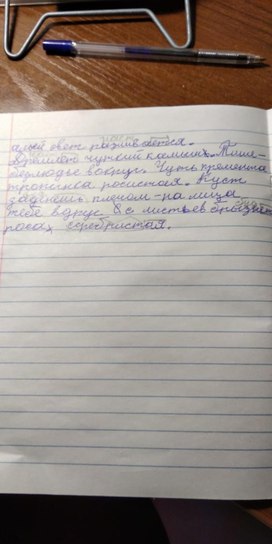 алый свет разливается.
Дремлет чуткий камыш. Тишь-
безлюдье вокруг. Чуть приметна
тропинка росистая. Куст
заденешь плечом-на лицо
тебе вдруг с листьев брызнет
роса серебристая.